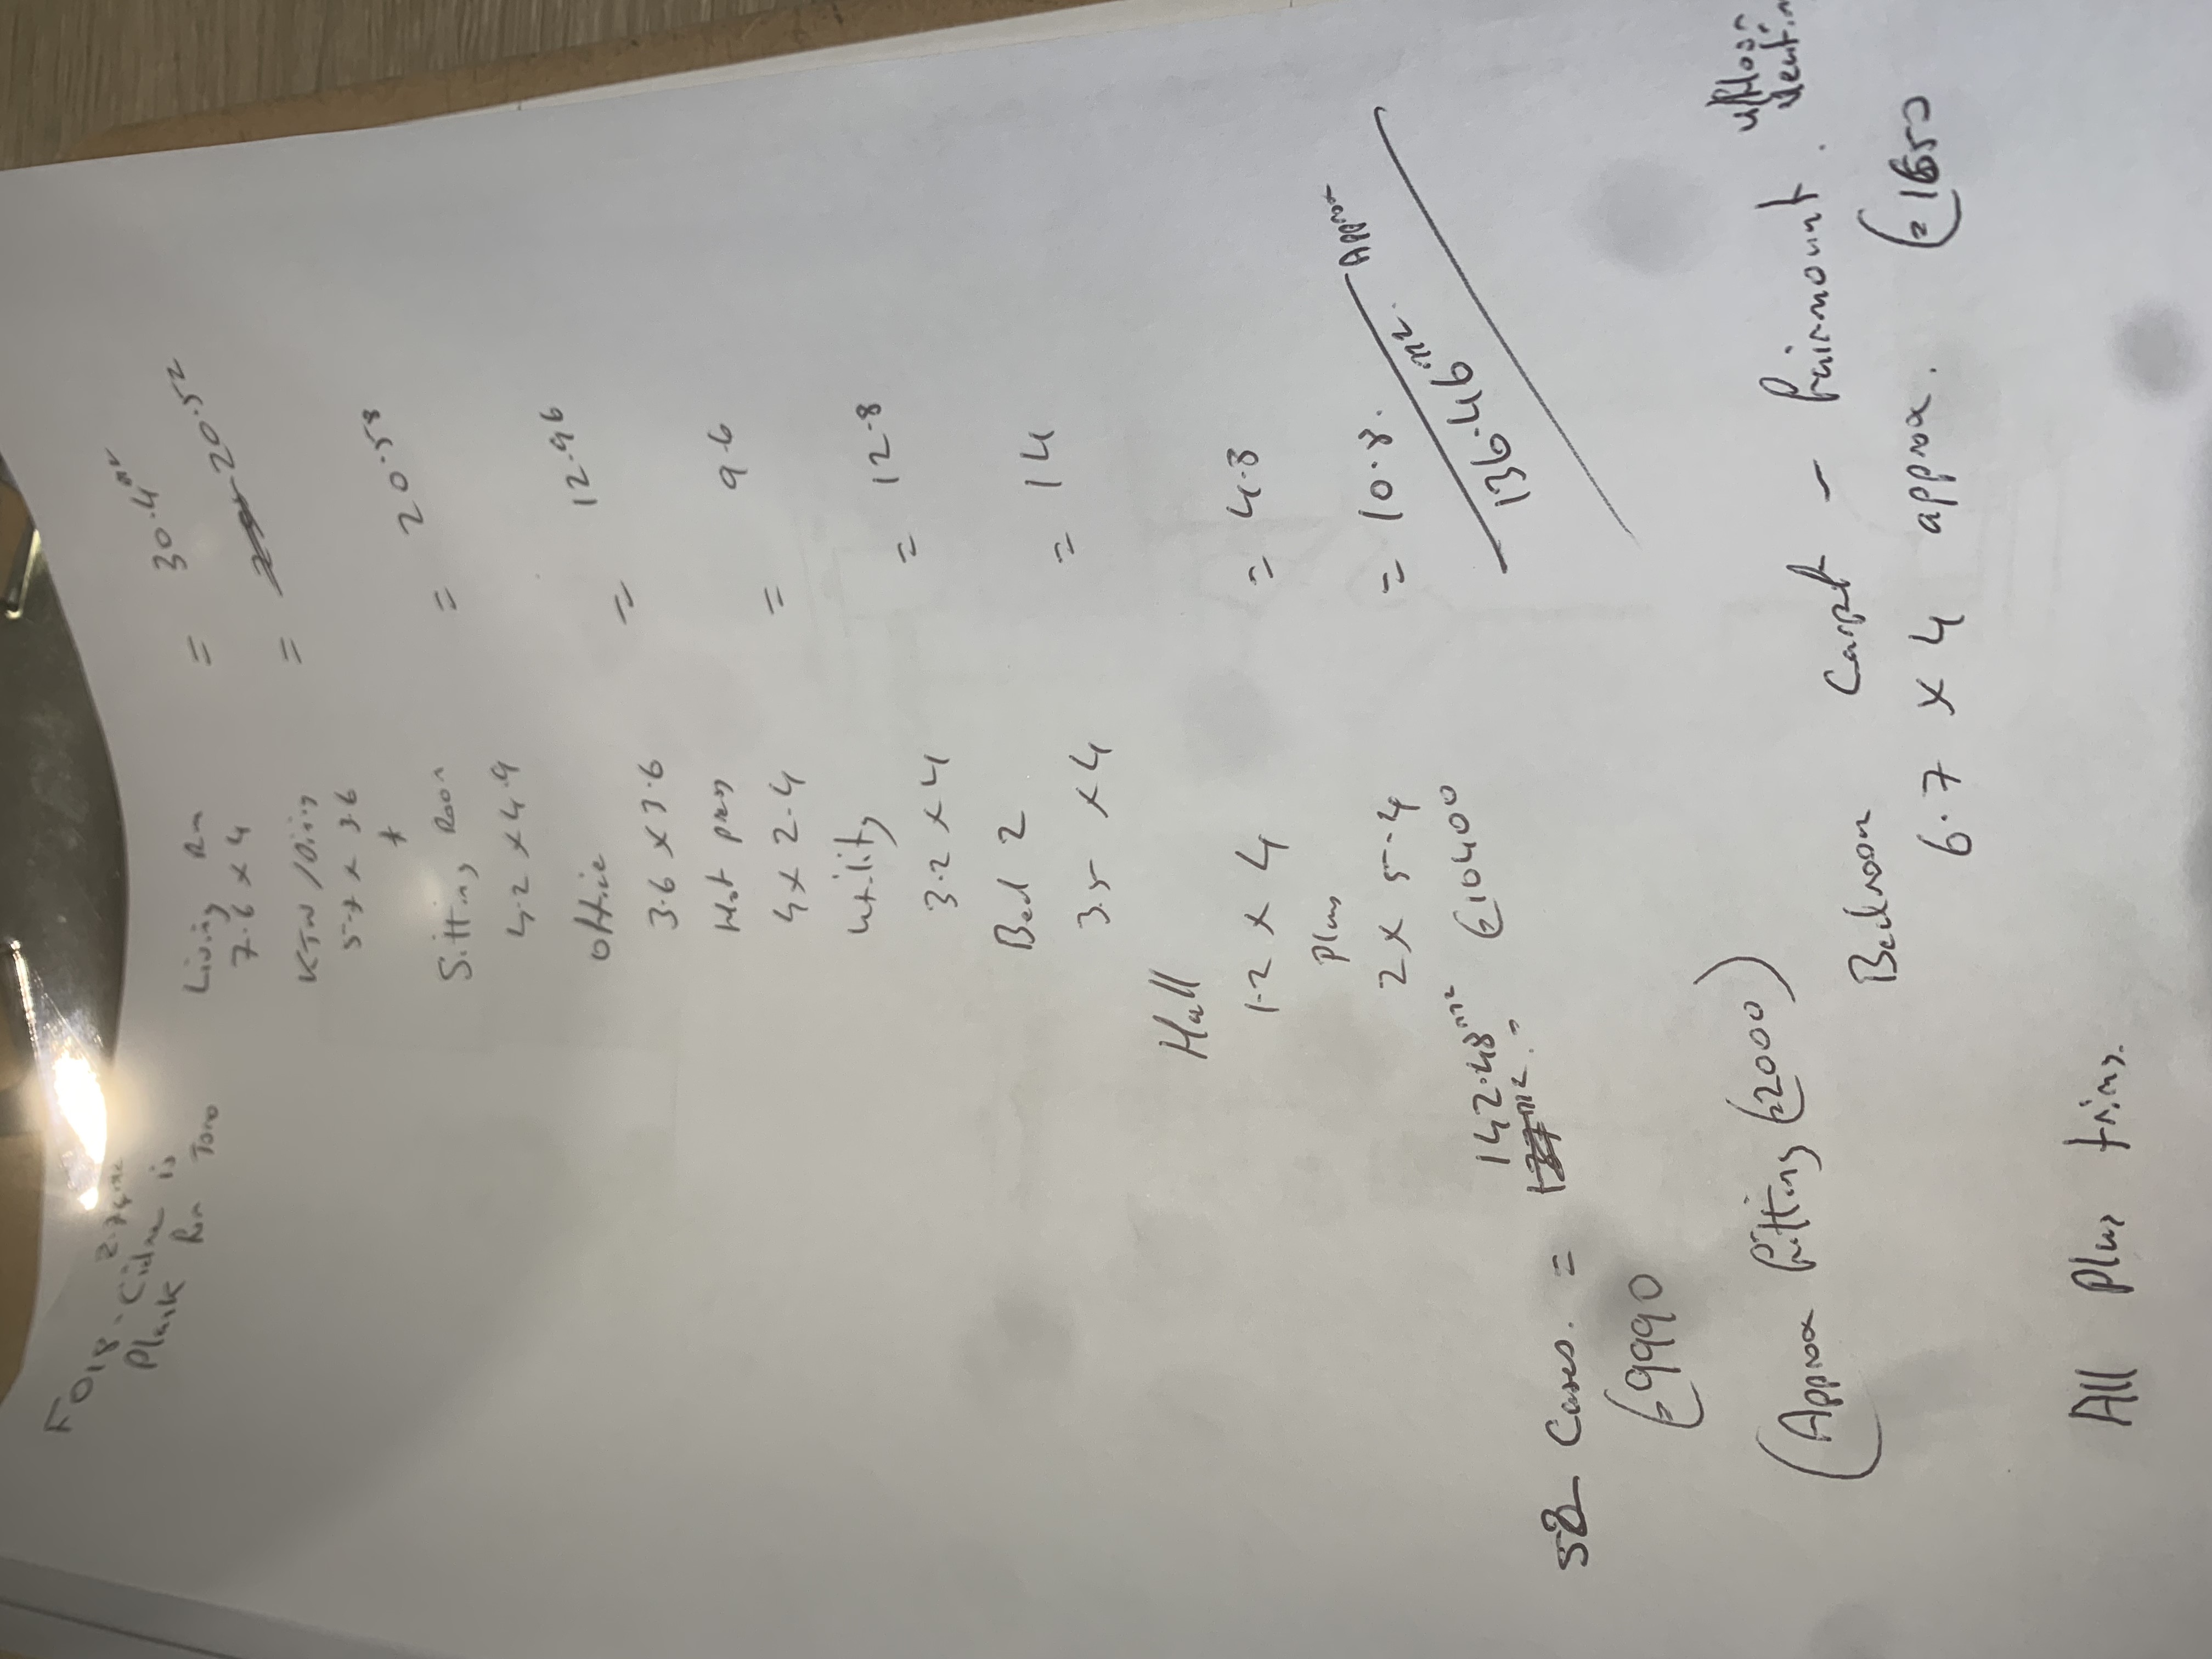 F018 - Cidne
2.74m2
Plank is
Ran Toro
Living Rm
7.6 x 4 = 30.4m2
KTN/Dining
5.7 x 3.6 = 20.52
Sitting Room
4.2 x 4.9 = 20.58
Office
3.6 x 3.6 = 12.96
Hot press
4 x 2.4 = 9.6
Utility
3.2 x 4 = 12.8
Bed 2
3.5 x 4 = 14
Hall
1.2 x 4 = 4.8
Plus
2 x 5.4 = 10.8.
136.46m2. Approx
52 Cases. = 142.48m2 €10400
€9990
(Approx fitting €2000)
Bedroom Carpet - Fairmount.
6.7 x 4 approx. €1650
All Plus trims.